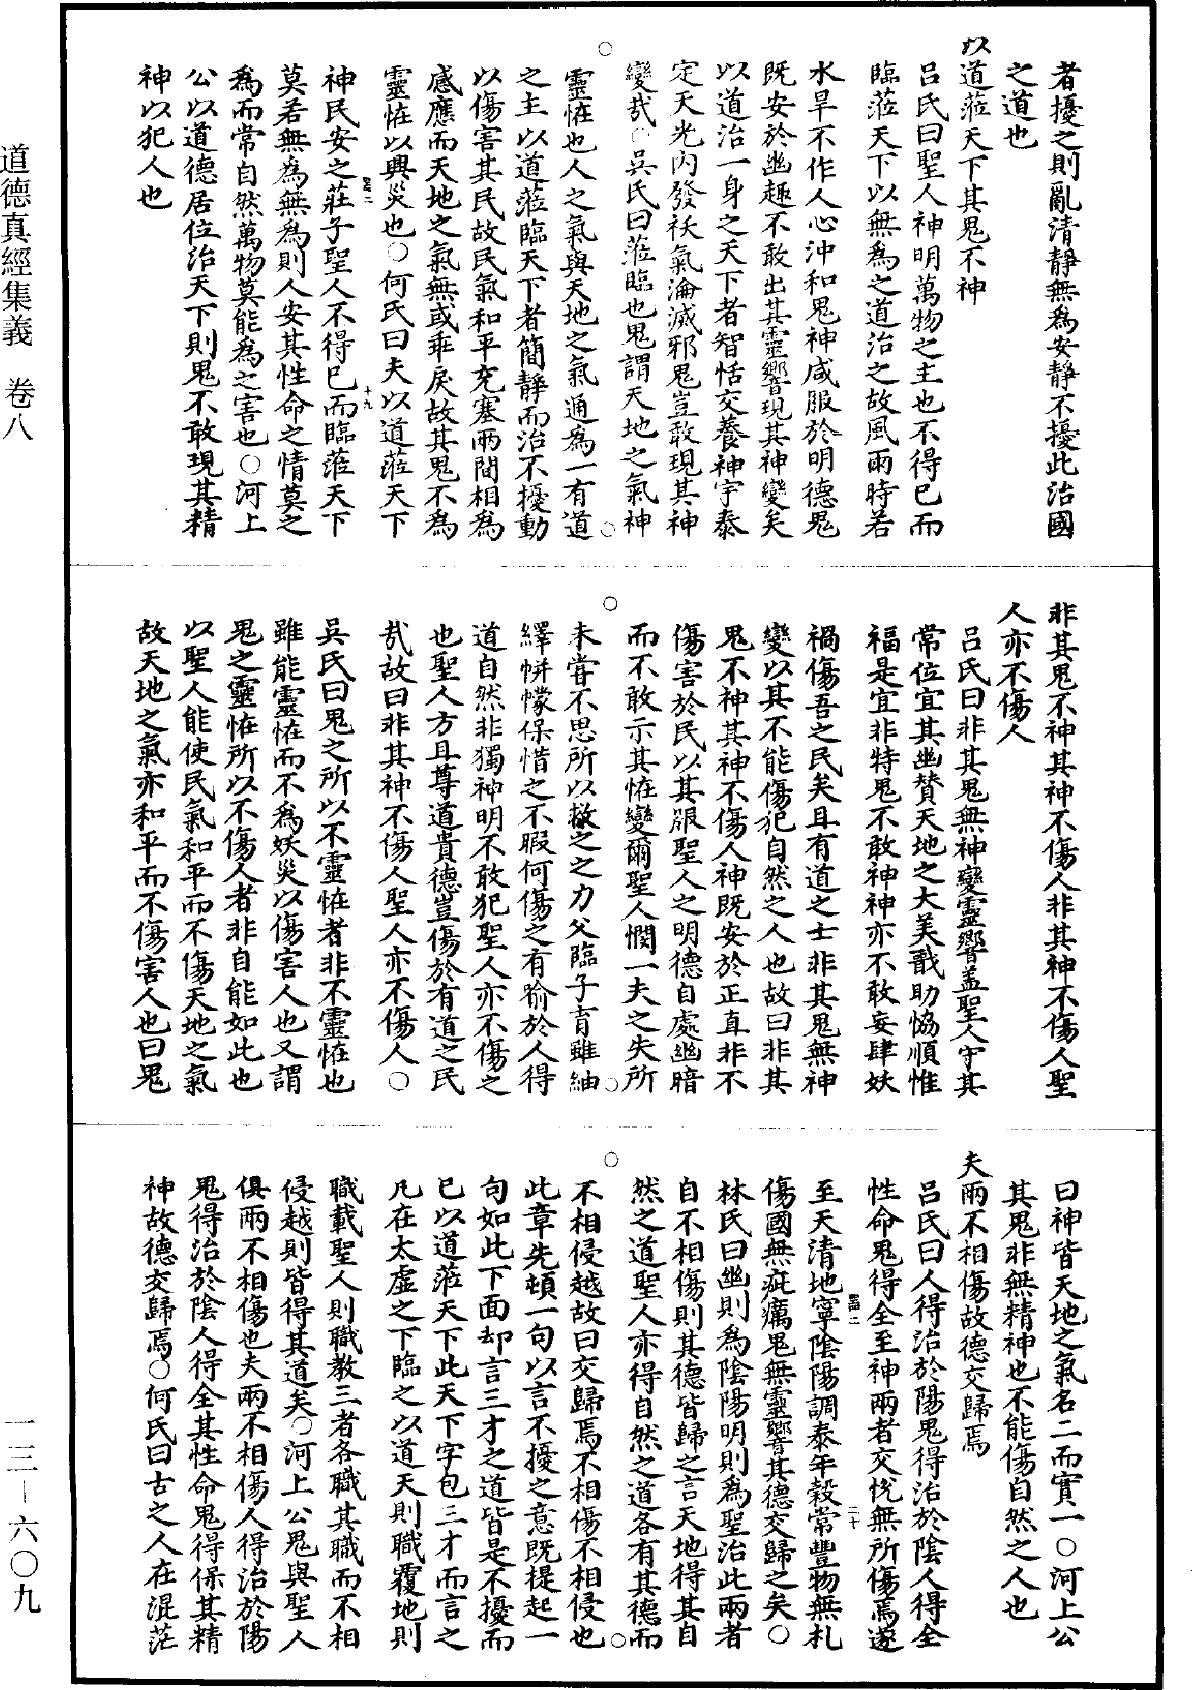 者擾之則亂清靜無爲安靜不擾此治國
之道也
以道蒞天下其鬼不神
呂氏曰聖人神明萬物之主也不得已而
臨蒞天下以無爲之道治之故風雨時若
水旱不作人心沖和鬼神咸服於明德鬼
既安於幽趣不敢出其靈響現其神變矣
以道治一身之天下者智恬交養神宇泰
定天光內發祅氣淪滅邪鬼豈敢現其神
變哉○吳氏曰蒞臨也鬼謂天地之氣神
靈恠也人之氣與天地之氣通爲一有道
之主以道蒞臨天下者簡靜而治不擾動
以傷害其民故民氣和平充塞兩間相爲
感應而天地之氣無或乖戾故其鬼不爲
靈恠以興災也○何氏曰夫以道蒞天下
神民安之莊子聖人不得已而臨蒞天下
莫若無爲無爲則人安其性命之情莫之
爲而常自然萬物莫能爲之害也○河上
公以道德居位治天下則鬼不敢現其精
神以犯人也
非其鬼不神其神不傷人非其神不傷人聖
人亦不傷人
呂氏曰非其鬼無神變靈響蓋聖人守其
常位宜其幽贊天地之大美戩助恊順惟
福是宜非特鬼不敢神神亦不敢妄肆妖
禍傷吾之民矣且有道之士非其鬼無神
變以其不能傷犯自然之人也故曰非其
鬼不神其神不傷人神既安於正直非不
傷害於民以其服聖人之明德自處幽暗
而不敢示其恠變爾聖人憫一夫之失所
未嘗不思所以拯之之力父臨子育雖紬
繹帡幪保惜之不暇何傷之有喻於人得
道自然非獨神明不敢犯聖人亦不傷之
也聖人方且尊道貴德豈傷於有道之民
哉故曰非其神不傷人聖人亦不傷人○
吳氏曰鬼之所以不靈恠者非不靈恠也
雖能靈恠而不爲妖災以傷害人也又謂
鬼之靈恠所以不傷人者非自能如此也
以聖人能使民氣和平而不傷天地之氣
故天地之氣亦和平而不傷害人也曰鬼
曰神皆天地之氣名二而實一○河上公
其鬼非無精神也不能傷自然之人也
夫兩不相傷故德交歸焉
呂氏曰人得治於陽鬼得治於陰人得全
性命鬼得全至神兩者交悅無所傷焉遂
至天清地寧陰陽調泰年穀常豐物無札
傷國無疵癘鬼無靈響其德交歸之矣○
林氏曰幽則爲陰陽明則爲聖治此兩者
自不相傷則其德皆歸之言天地得其自
然之道聖人亦得自然之道各有其德而
不相侵越故曰交歸焉不相傷不相侵也
此章先頓一句以言不擾之意既提起一
句如此下面却言三才之道皆是不擾而
已以道蒞天下此天下字包三才而言之
凡在太虛之下臨之以道天則職覆地則
職載聖人則職教三者各職其職而不相
侵越則皆得其道矣○河上公鬼與聖人
俱兩不相傷也夫兩不相傷人得治於陽
鬼得治於陰人得全其性命鬼得保其精
神故德交歸焉○何氏曰古之人在混茫
道德真經集義　卷八
一三—六〇九